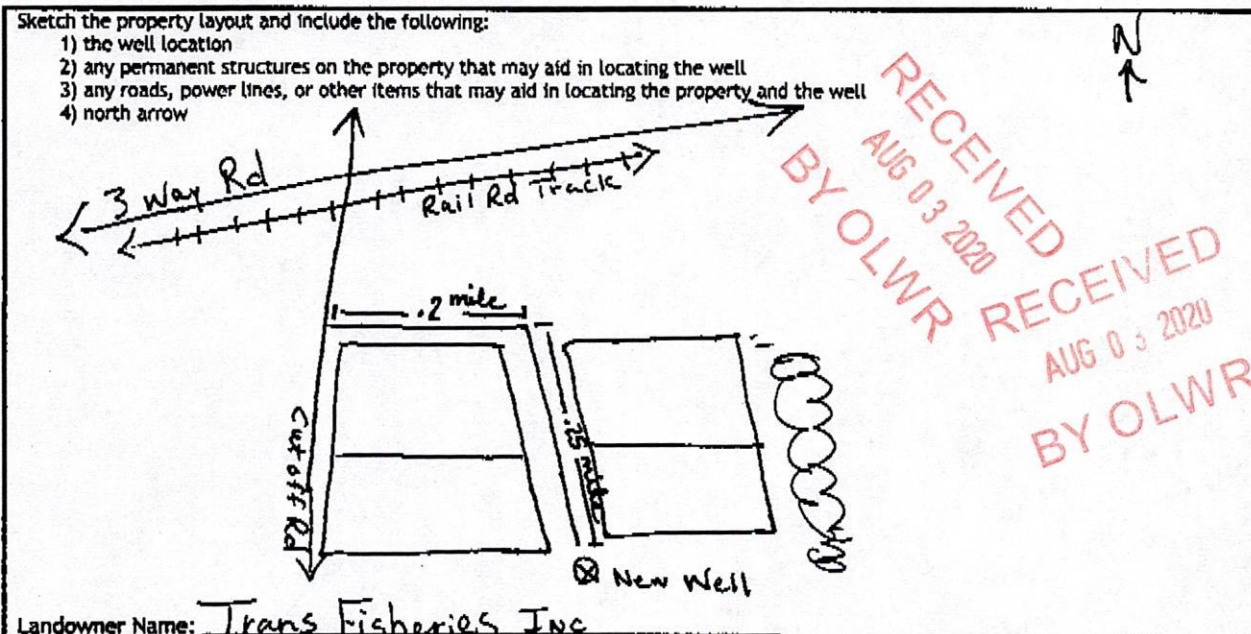 Sketch the property layout and include the following:
1) the well location
2) any permanent structures on the property that may aid in locating the well
3) any roads, power lines, or other items that may aid in locating the property and the well
4) north arrow
N
3 Way Rd
Rail Rd Track
RECEIVED
AUG 03 2020
BY OLWR
RECEIVED
AUG 03 2020
BY OLWR
.2 mile
.25 mile
Cutoff Rd
New Well
Landowner Name: Trans Fisheries Inc